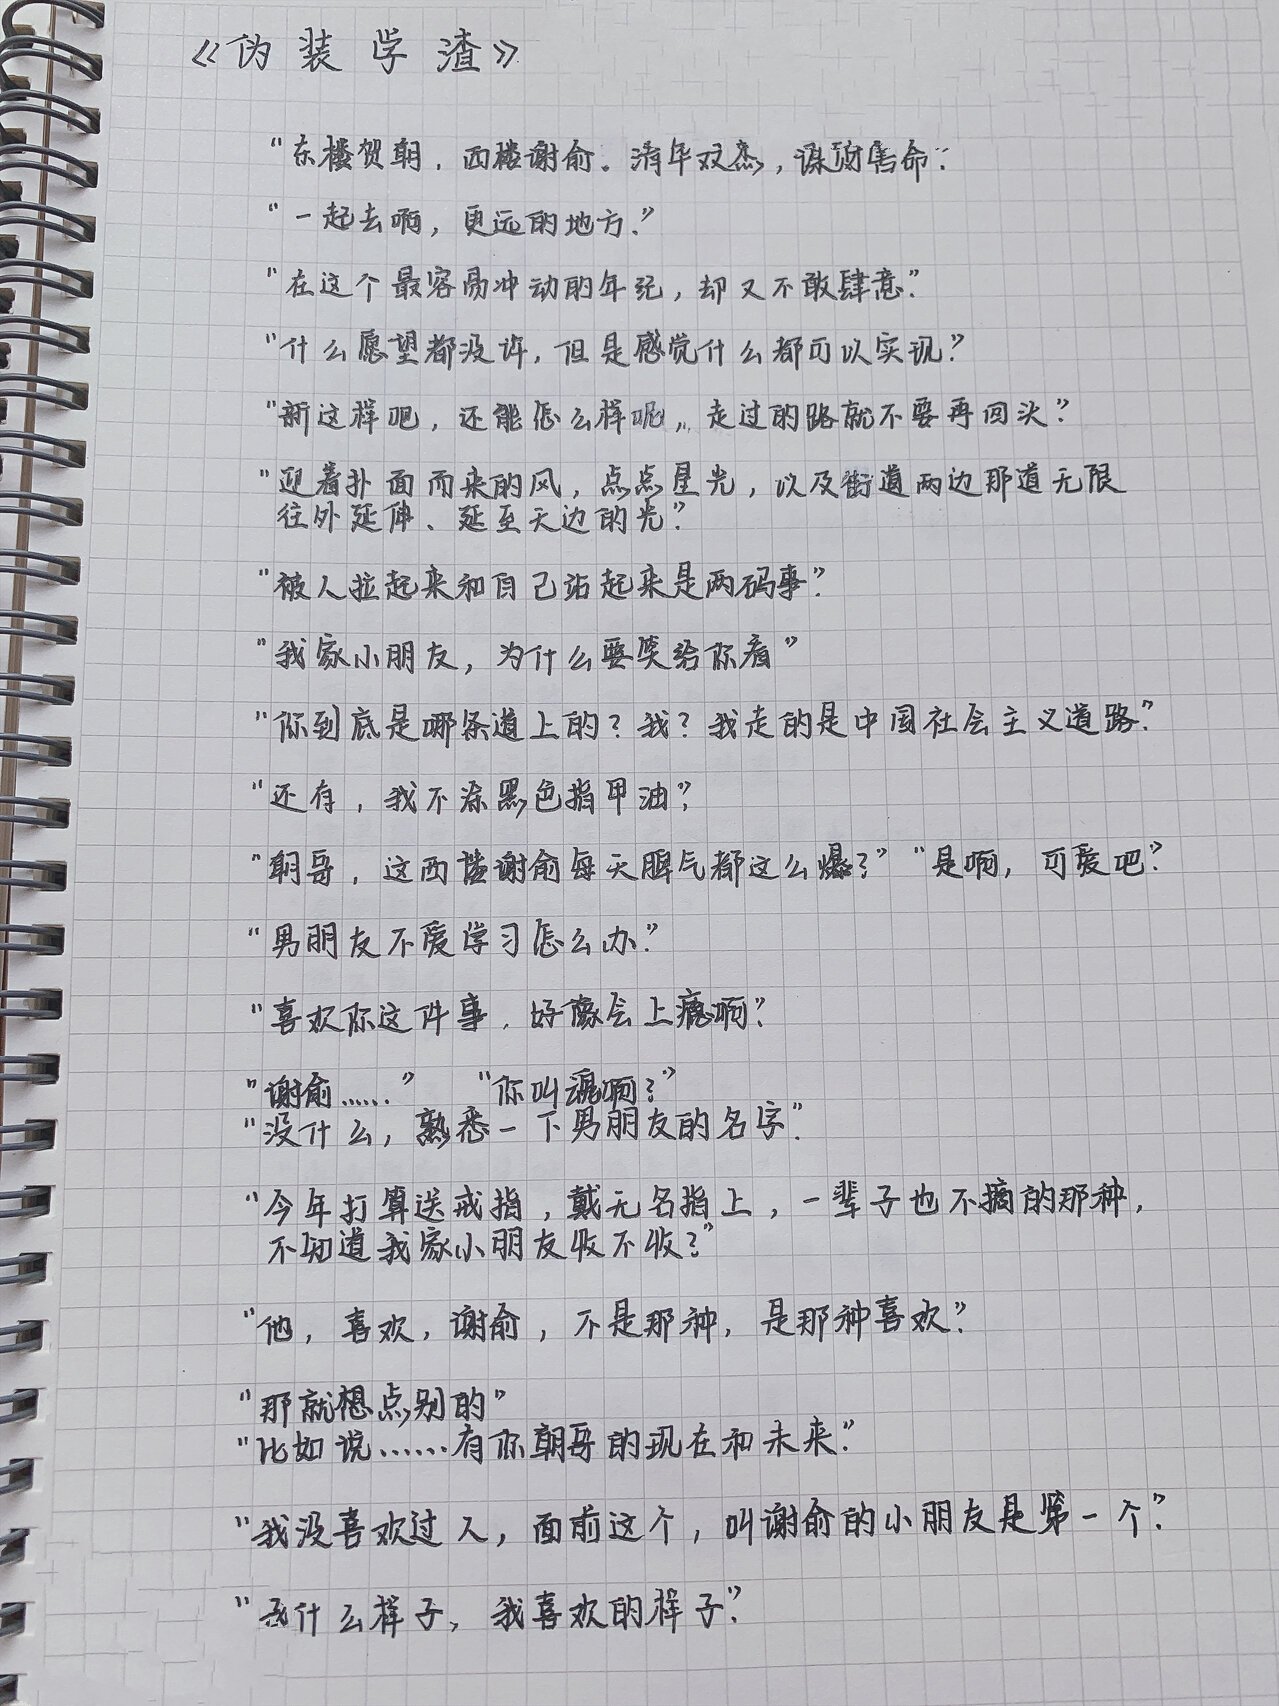 《伪装学渣》
“东楼贺朝，西楼谢俞。清华双杰，谋财害命.”
“一起去啊，更远的地方.”
“在这个最容易冲动的年纪，却又不敢肆意.”
“什么愿望都没许，但是感觉什么都可以实现.”
“新这样吧，还能怎么样呢,,走过的路就不要再回头.”
“迎着扑面而来的风，点点星光，以及街道两边那道无限
往外延伸、延至天边的光.”
“被人拉起来和自己站起来是两码事.”
“我家小朋友，为什么要笑给你看”
“你到底是哪条道上的？我？我走的是中国社会主义道路.”
“还有，我不涂黑色指甲油.”
“朝哥，这西楼谢俞每天脾气都这么爆？”“是啊，可爱吧.”
“男朋友不爱学习怎么办.”
“喜欢你这件事，好像会上瘾啊.”
“谢俞……” “你叫魂啊？”
“没什么，熟悉一下男朋友的名字.”
“今年打算送戒指，戴无名指上，一辈子也不摘的那种，
不知道我家小朋友收不收？”
“他，喜欢，谢俞，不是那种，是那种喜欢.”
“那就想点别的”
“比如说……有你朝哥的现在和未来.”
“我没喜欢过人，面前这个，叫谢俞的小朋友是第一个.”
“什么样子，我喜欢的样子.”